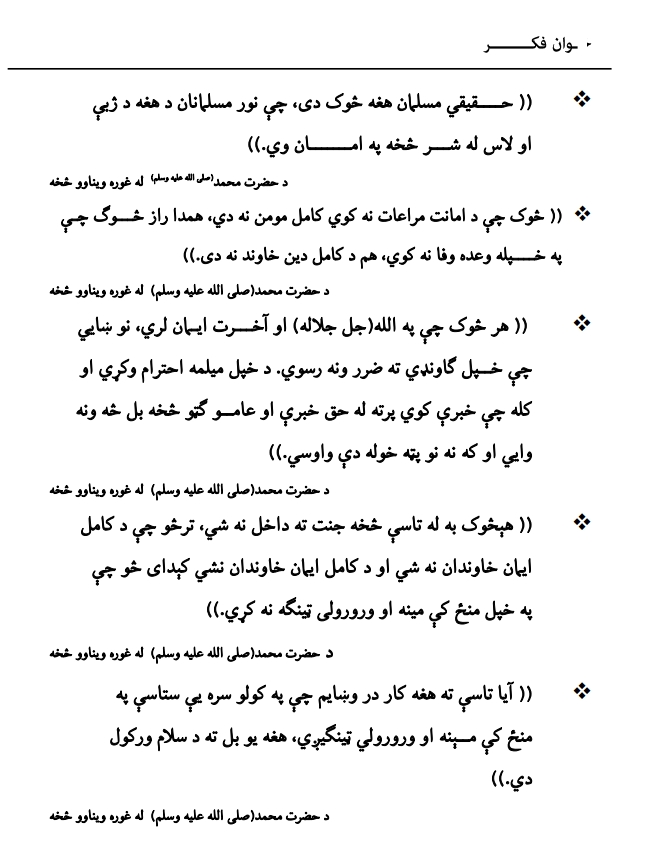 ـوان فکــــــر
❖ (( حـــقيقي مسلمان هغه څوک دی، چې نور مسلمانان د هغه د ژبې
او لاس له شـــر څخه په امـــــان وي.))
د حضرت محمد(صلی الله علیه وسلم) له غوره ویناوو څخه
❖ (( څوک چې د امانت مراعات نه کوي کامل مومن نه دي، همدا راز څـــوگ چـې
په خـــپله وعده وفا نه کوي، هم د کامل دين خاوند نه دی.))
د حضرت محمد(صلی الله علیه وسلم) له غوره ویناوو څخه
❖ (( هر څوک چې په الله(جل جلاله) او آخـــرت ايـمان لري، نو ښايي
چې خـــپل گاونډي ته ضرر ونه رسوي. د خپل مېلمه احترام وکړي او
کله چې خبرې کوي پرته له حق خبرې او عامـــو گټو څخه بل څه ونه
وايي او که نه نو پټه خوله دې واوسي.))
د حضرت محمد(صلی الله علیه وسلم) له غوره ویناوو څخه
❖ (( هېڅوک به له تاسې څخه جنت ته داخل نه شي، ترڅو چې د کامل
ايمان خاوندان نه شي او د کامل ايمان خاوندان نشي کېدای څو چې
په خپل منځ کې مينه او ورورولی ټينگه نه کړي.))
د حضرت محمد(صلی الله علیه وسلم) له غوره ویناوو څخه
❖ (( آيا تاسې ته هغه کار در وښايم چې په کولو سره يې ستاسې په
منځ کې مـــينه او ورورولي ټينگيږي، هغه يو بل ته د سلام ورکول
دي.))
د حضرت محمد(صلی الله علیه وسلم) له غوره ویناوو څخه